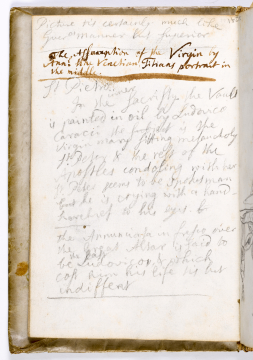 Picture tis certainly much like
manner but superior
The Assumption of the Virgin by
the Venetian Titians portrait in
the middle.
St Pietro
In the Sacristy the Vault
is painted in oil by Ludovico
Caracci its subject is the
Virgin Mary sitting melancholy
St Peter & the rest of the
Apostles condoling with her
St Peter seems to be Spokesman
but he is crying with a hand
kerchief to his eyes.
The Annunciation in fresco over
the Great Altar is said to
be the last of Ludovicos & which
cost him his life tis but
indifferent